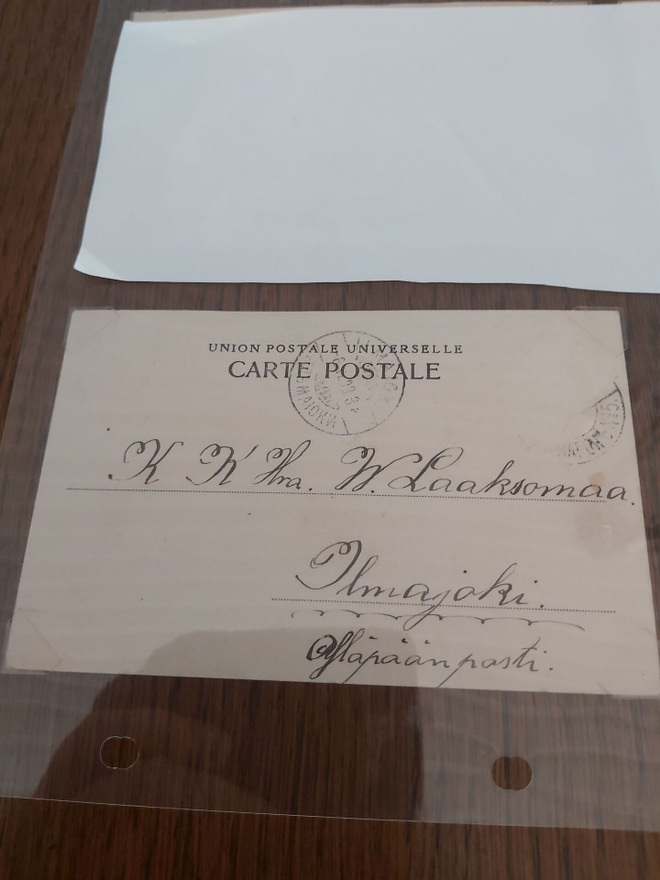 UNION POSTALE UNIVERSELLE
CARTE POSTALE
K K Hra. W. Laaksomaa.
Ilmajoki.
Yläpään posti.